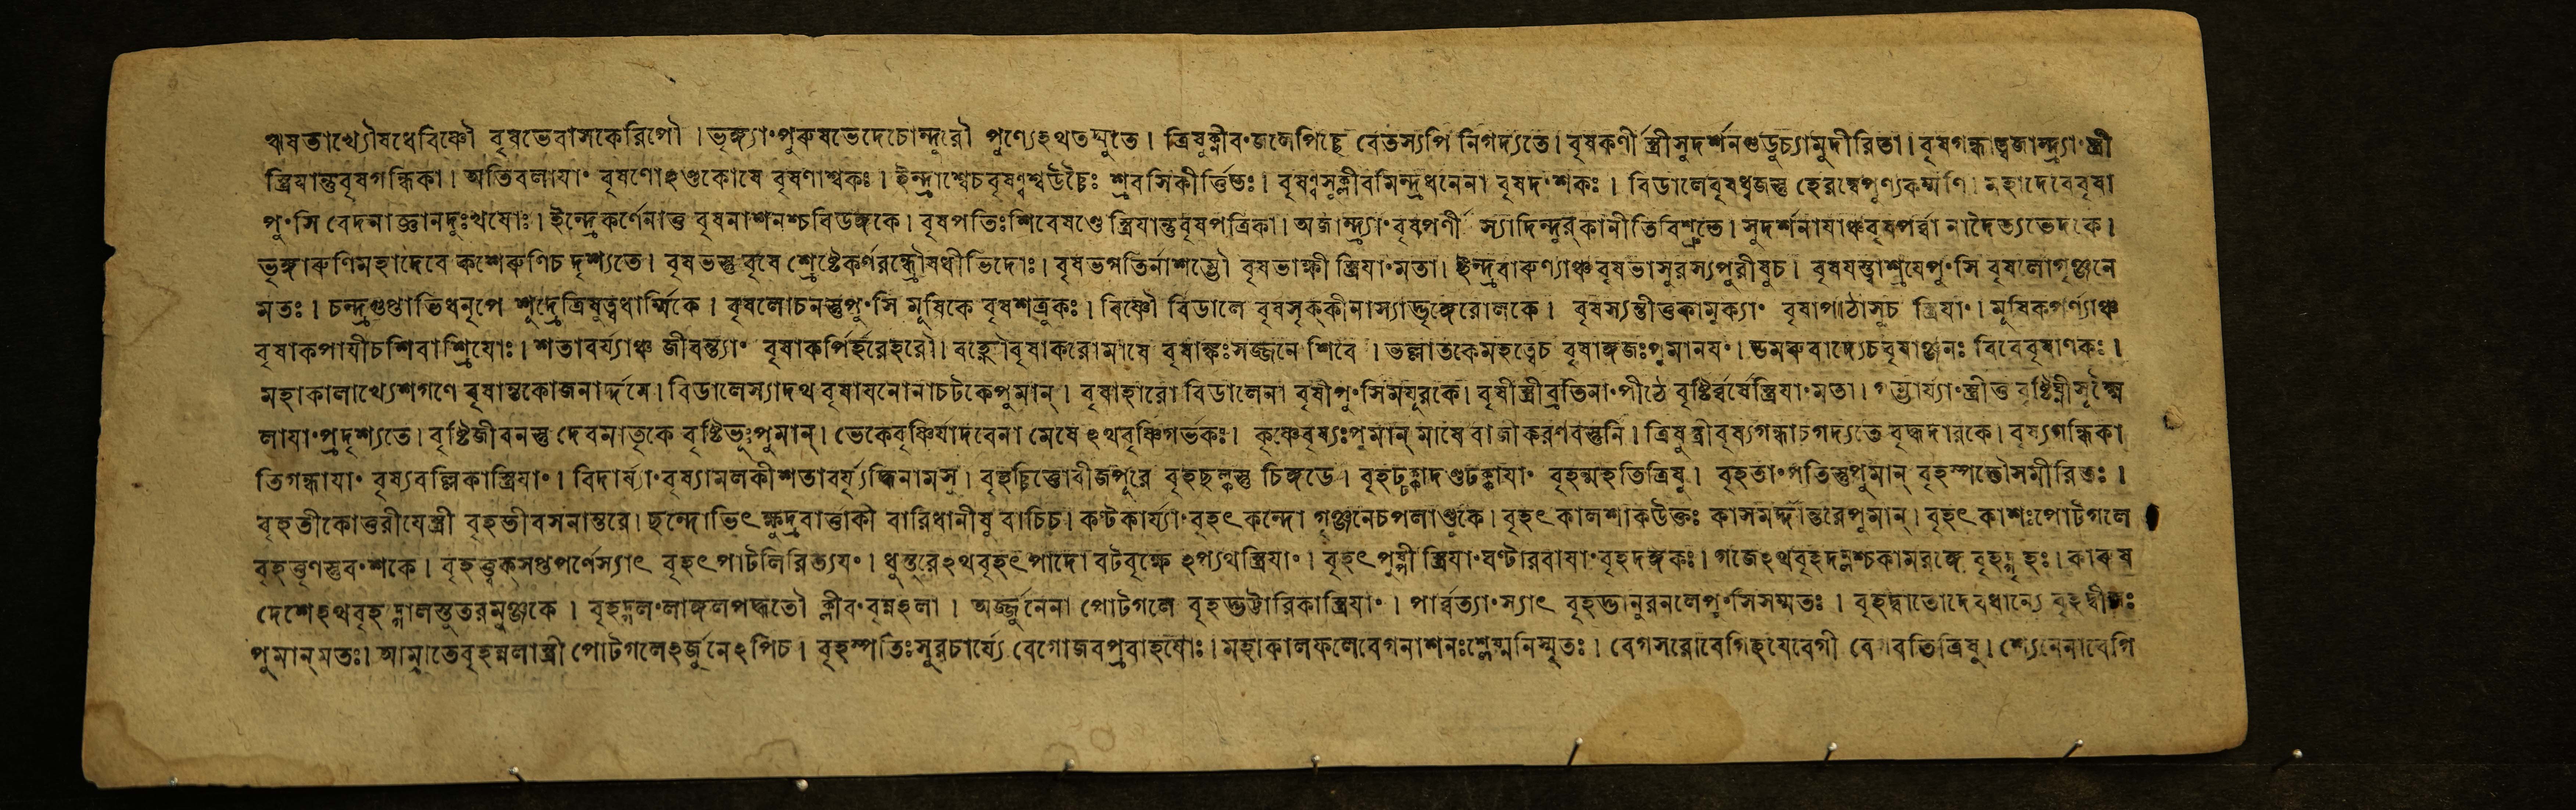 ঋষভাখ্যৌষধেবিষ্ণৌ বৃষভেবাসকেরিপৌ । ভৃঙ্গ্যা°পুরুষভেদেচোন্দুরৌ পুণ্যেঽথতম্মুতে । ত্রিষুক্লীব°জলেপিচ্ছে বেতস্যপি নিগদ্যতে । বৃষকর্ণী স্ত্রীসুদর্শনগুডুচ্যামুদীরিতা । বৃষগন্ধাত্বজান্ত্র্যা°স্ত্রী
স্ত্রিযান্তুবৃষগন্ধিকা । অতিবলাযা° বৃষণোঽণ্ডকোষে বৃষণাশ্বকঃ । ইন্দ্রাশ্বেচবৃষণ্বশ্বউচ্চৈঃ শ্রবসিকীর্ত্তিতঃ । বৃষণ্বসুক্লীবমিন্দ্রধনেনা বৃষদ°শকঃ । বিডালেবৃষধ্বজস্তু হেরম্বেপুণ্যকর্ম্মণি । মহাদেবেবৃষা
পু°সি বেদনাজ্ঞানদুঃখযোঃ । ইন্দ্রেকর্ণেনাত্তু বৃষনাশনশ্চবিডঙ্গকে । বৃষপতিঃশিবেষণ্ডে স্ত্রিযান্তুবৃষপত্রিকা । অজান্ত্র্যা°বৃষপর্ণী স্যাদিন্দুরকানীতিবিশ্রুতে । সুদর্শনাযাঞ্চবৃষপর্ব্বা নাদৈত্যভেদকে ।
ভৃঙ্গারুণিমহাদেবে কশেরুণিচ দৃশ্যতে । বৃষভস্তুবৃষে শ্রেষ্টেকর্ণরন্ধ্রৌষধীভিদোঃ । বৃষভগতির্নাশম্ভৌ বৃষভাক্ষী স্ত্রিযা°মতা । ইন্দ্রবারুণ্যাঞ্চবৃষভাসুরস্যপুরীষুচ । বৃষযস্ত্বাশ্রযেপু°সি বৃষলোগৃঞ্জনে
মতঃ । চন্দ্রগুপ্তাভিধনৃপে শূদ্রেত্রিষুত্বধার্ম্মিকে । বৃষলোচনস্তুপু°সি মূষিকে বৃষশত্রুকঃ । বিষ্ণৌ বিডালে বৃষসৃক্কীনাস্যাদ্ভৃঙ্গেরোলকে । বৃষস্যন্তীতুকামুক্যা° বৃষাপাঠাসুচ স্ত্রিযা° । মূষিকপর্ণ্যাঞ্চ
বৃষাকপাযীচশিবাশ্রিযোঃ । শতাবর্য্যাঞ্চ জীবন্ত্যা° বৃষাকপির্হরেহরৌ । বহ্নৌবৃষাকরোমাষে বৃষাঙ্কঃসজ্জনে শিবে । ভল্লাতকেমহত্বেচ বৃষাঙ্গজঃপুমানয° । ডমরুবাদ্যেচবৃষাঞ্জনঃ বিবেবৃষাণকঃ ।
মহাকালাখ্যেশগণে বৃষান্তকোজনার্দ্দনে । বিডালেস্যাদথ বৃষাযনোনাচটকেপুমান্ । বৃষাহারো বিডালেনা বৃষীপু°সিমযূরকে । বৃষীস্ত্রীব্রতিনা°পীঠে বৃষ্টির্ব্বর্ষেস্ত্রিযা°মতা । গম্ভার্য্যা°স্ত্রীতু বৃষ্টিঘ্নীসূক্ষ্মৈ
লাযা°প্রদৃশ্যতে । বৃষ্টিজীবনস্তু দেবমাতৃকে বৃষ্টিভূঃপুমান্ । ভেকেবৃষ্ণির্যাদবেনা মেষে ঽথবৃষ্ণিগর্ভকঃ । কৃষ্ণেবৃষ্যঃপুমান্ মাষে বাজীকরণবস্তুনি । ত্রিষুস্ত্রীবৃষ্যগন্ধাচগদ্যতে বৃদ্ধদারকে । বৃষ্যগন্ধিকা
তিগন্ধাযা° বৃষ্যবল্লিকাস্ত্রিযা° । বিদার্য্যা°বৃষ্যামলকীশতাবর্য্যৃদ্ধিনামসু । বৃহচ্চিত্তোবীজপূরে বৃহছল্কস্তু চিঙ্গডে । বৃহট্ঢক্কাদণ্ডঢক্কাযা° বৃহন্মহতিত্রিষু । বৃহতা°পতিস্তুপুমান্ বৃহস্পতৌসমীরিতঃ ।
বৃহতীকোত্তরীযেস্ত্রী বৃহতীবসনান্তরে । ছন্দোভিৎক্ষুদ্রবার্ত্তাকী বারিধানীষু বাচিচ । কণ্টকার্য্যা°বৃহৎকন্দো গৃঞ্জনেচপলাণ্ডুকে । বৃহৎকালশাকউক্তঃ কাসমর্দ্দান্তরেপুমান্ । বৃহৎকাশঃপোটগলে
বৃহত্তৃণস্তুব°শকে । বৃহত্ত্বক্সপ্তপর্ণেস্যাৎ বৃহৎপাটলিরিত্যয° । ধুস্তুরেঽথবৃহৎপাদো বটবৃক্ষে ঽপ্যথস্ত্রিযা° । বৃহৎপুষ্পী স্ত্রিযা°ঘণ্টারবাযা°বৃহদঙ্গকঃ । গজেঽথবৃহদম্লশ্চকামরঙ্গে বৃহদ্গৃহঃ । কারুষ
দেশেঽথবৃহন্নালস্তুতরমুঞ্জকে । বৃহদ্ধল°লাঙ্গলপদ্ধতৌ ক্লীব°বৃন্নহলা । অর্জ্জুনেনা পোটগলে বৃহদ্ভট্টারিকাস্ত্রিযা° । পার্ব্বত্যা°স্যাৎ বৃহদ্ভানুরনলেপু°সিসম্মতঃ । বৃহদ্বাতোদেবধান্যে বৃহদ্বীজঃ
পুমান্মতঃ । আম্রাতেবৃহন্নলাস্ত্রী পোটগলেঽর্জুনেঽপিচ । বৃহস্পতিঃসুরচার্য্যে বেগোজবপ্রবাহযোঃ । মহাকালফলেবেগনাশনঃশ্লেষ্মনিস্মৃতঃ । বেগসরোবেগিহযেবেগী বেগবতিত্রিষু । শ্যেনেনাবেগি